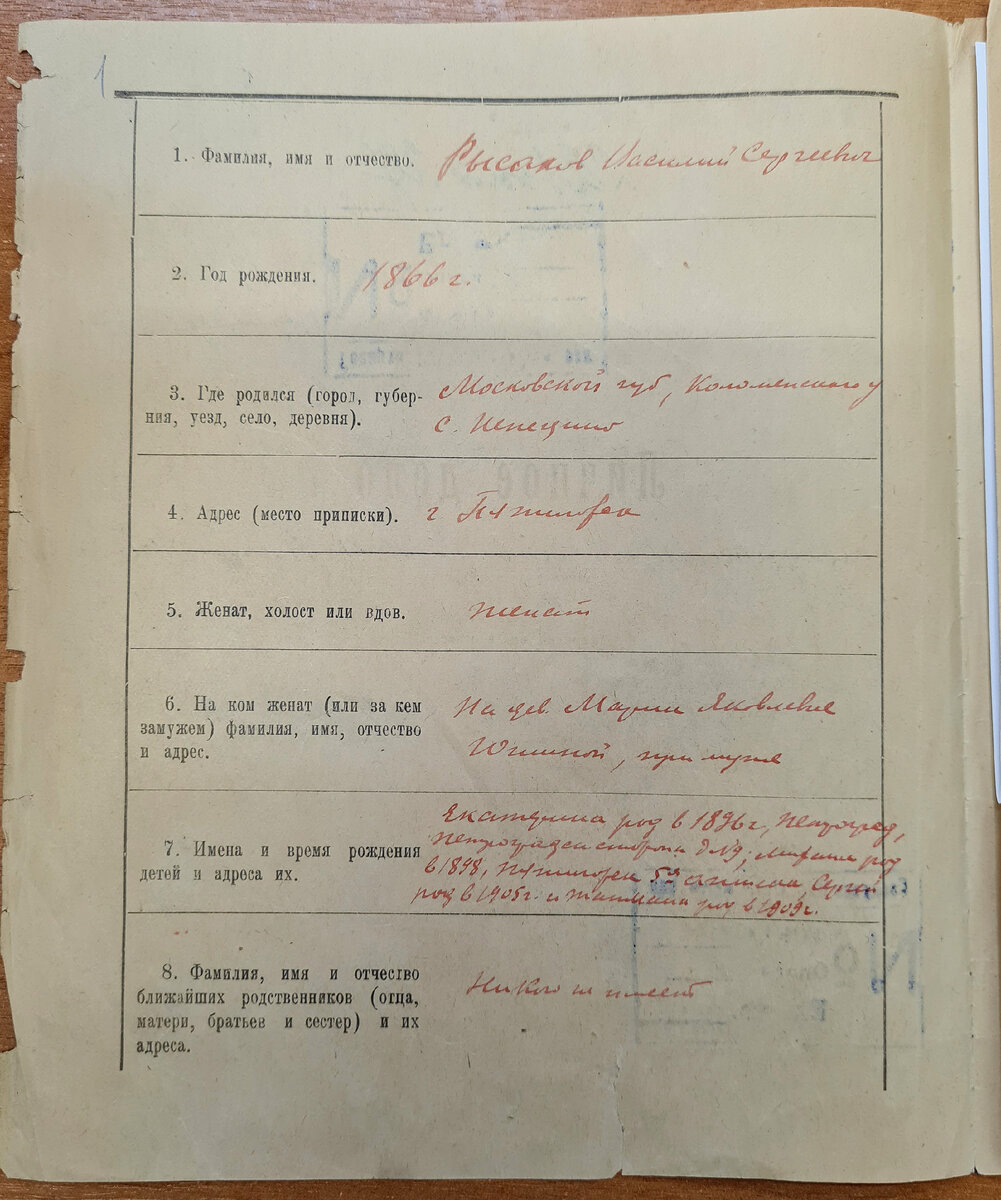 1
1. Фамилия, имя и отчество. Рысаков Василий Сергеевич
2. Год рождения. 1866 г.
3. Где родился (город, губер- Московской губ, Коломенского у
ния, уезд, село, деревня). с.
4. Адрес (место приписки). г Пятигорск
5. Женат, холост или вдов. женат
6. На ком женат (или за кем На дев. Марии Яковлевне
замужем) фамилия, имя, отчество
и адрес. при муже
Екатерина род в 1896 г, Петроград,
7. Имена и время рождения род
детей и адреса их. в 1898, Пятигорск Сергей
род в 1905 г. и род в 1909 г.
8. Фамилия, имя и отчество Никого не имеет
ближайших родственников (отца,
матери, братьев и сестер) и их
адреса.